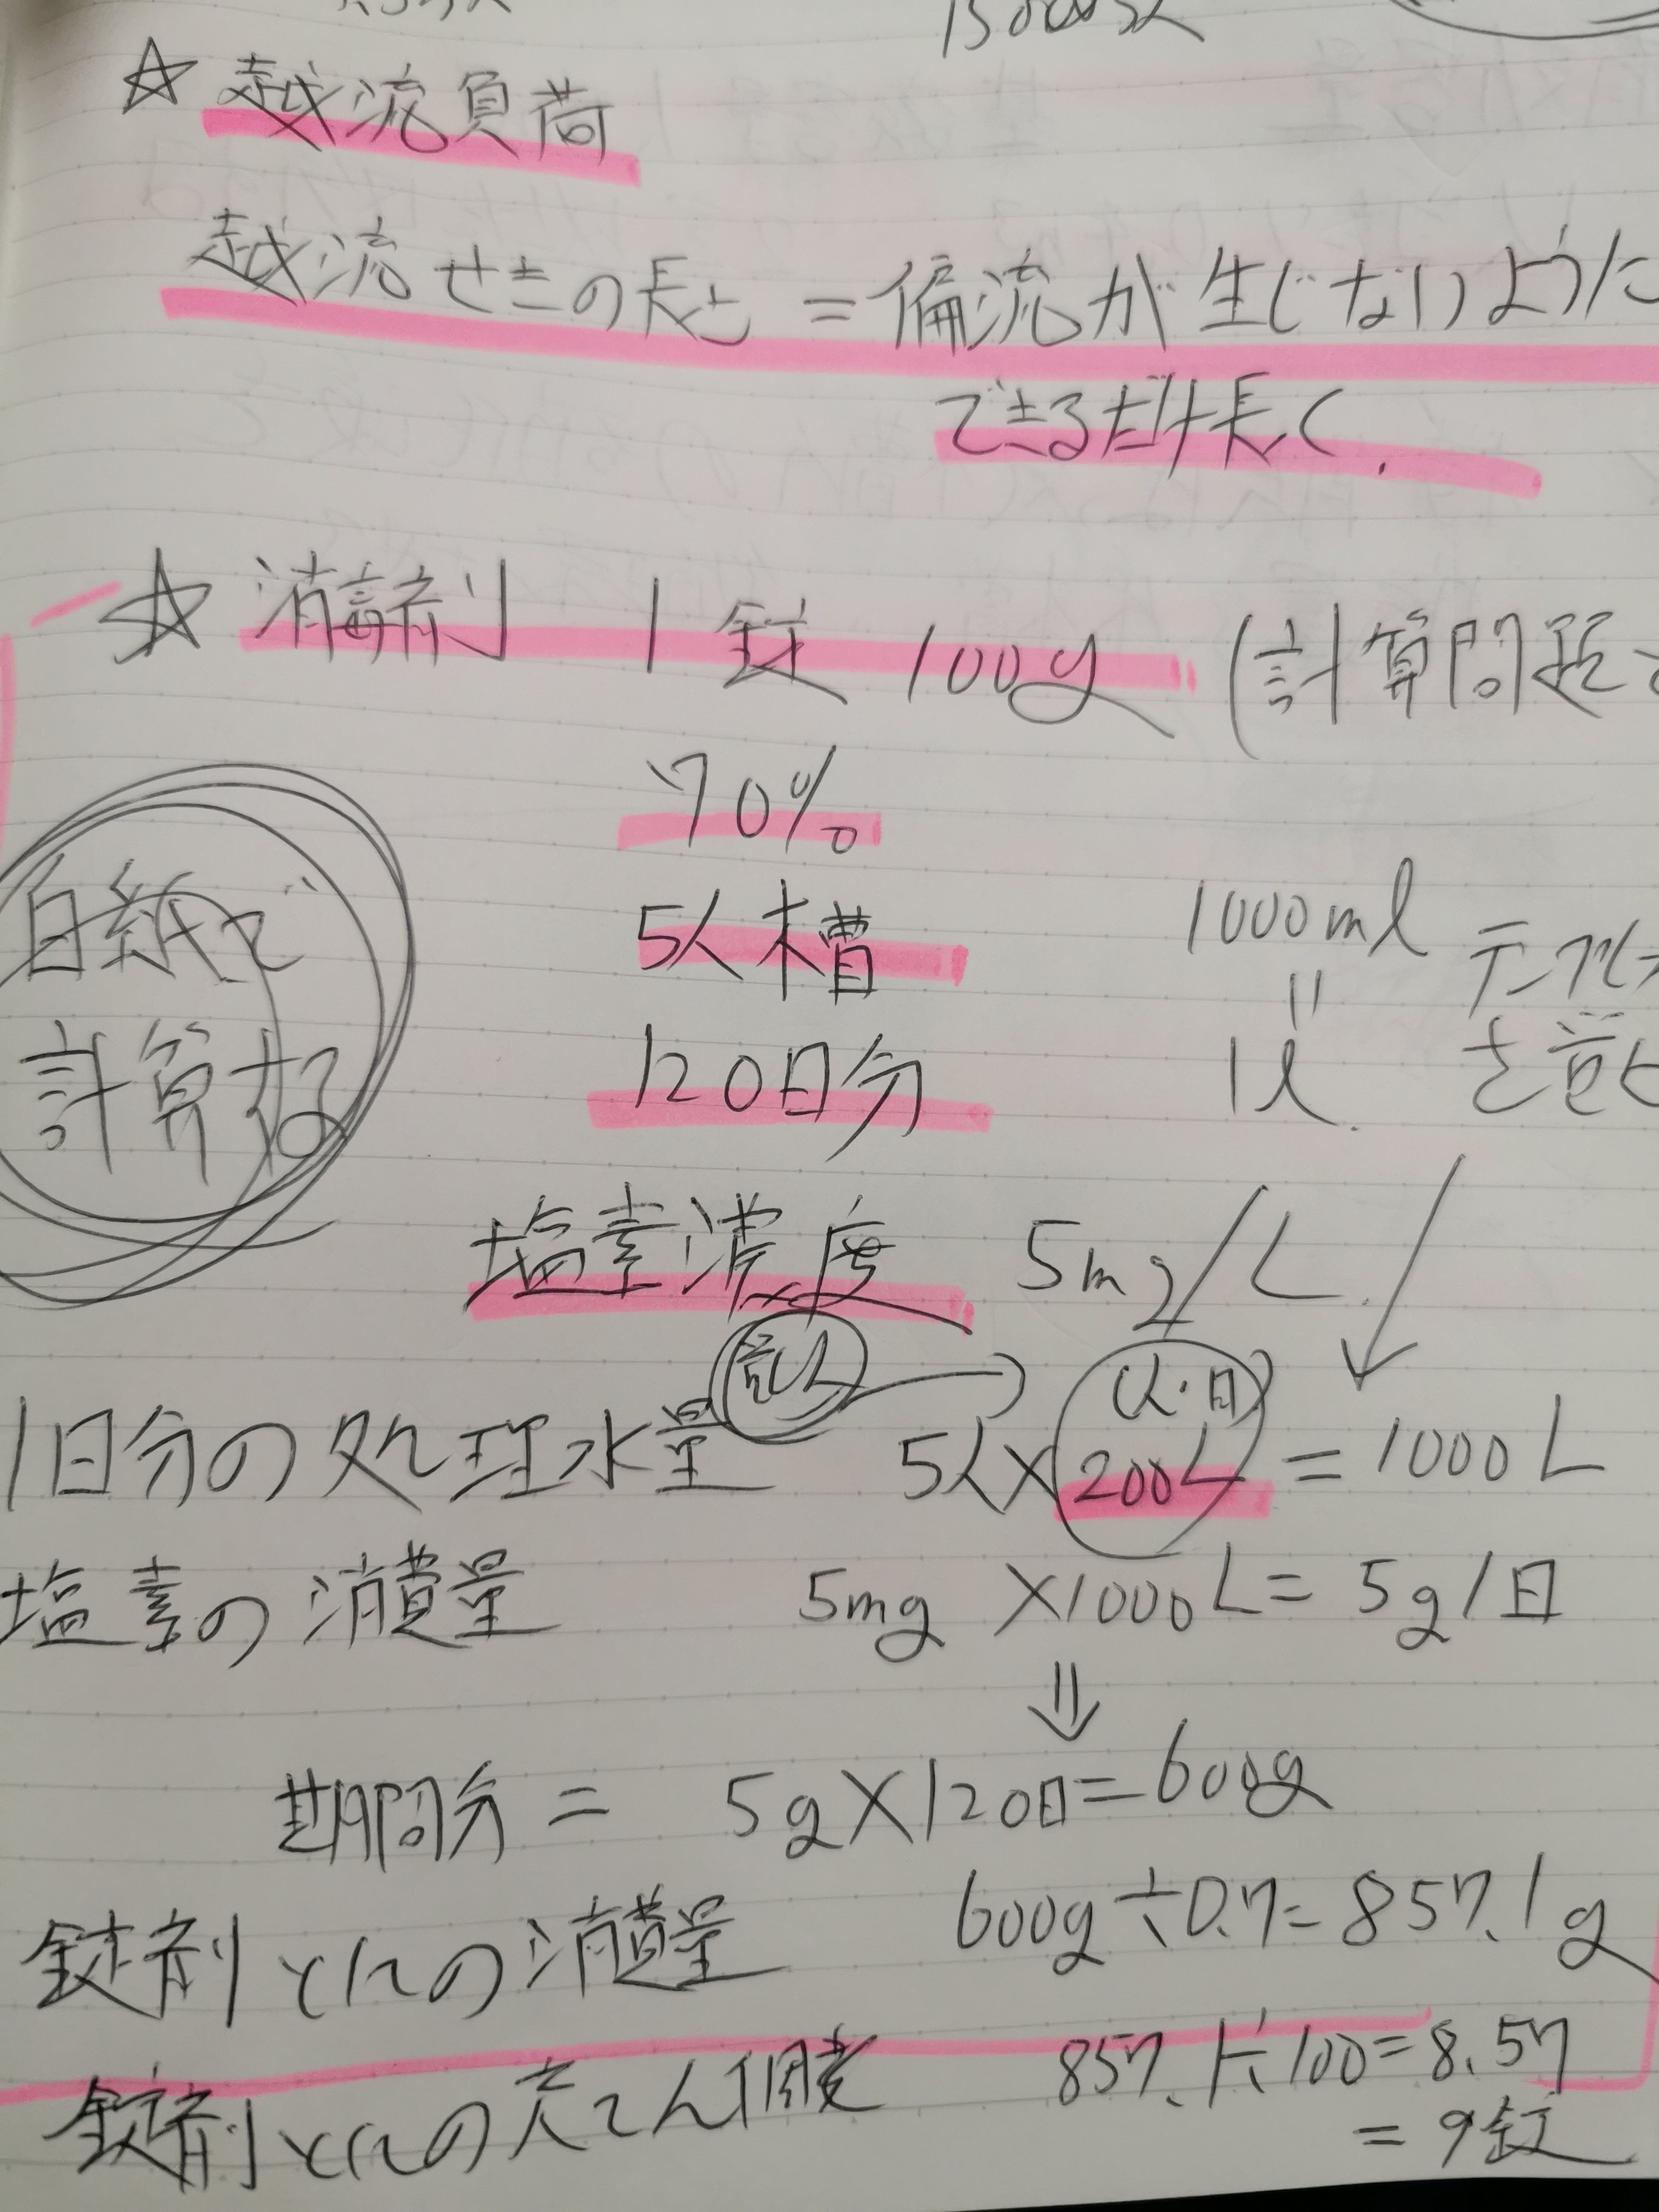 ☆ 越流負荷
越流せきの長さ = 偏流が生じないように
できるだけ長く.
☆ 消毒剤 1錠 100g (計算問題
70%
5人槽
120日分
白紙で
計算する
1000ml
=
1l.
テンプレ
を覚
塩素濃度 5mg/L.
1日分の処理水量 5人×200L(人・日) = 1000L
塩素の消費量 5mg ×1000L = 5g/日
⇓
期間分 = 5g×120日=600g
錠剤としての消費量 600g÷0.7=857.1g
錠剤としての充てん個数 857.1÷100=8.57
= 9錠